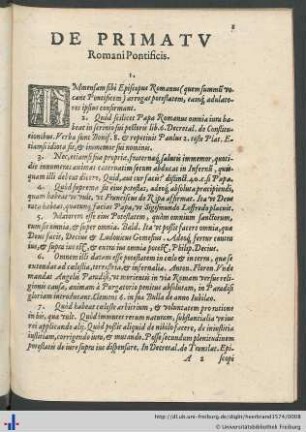 DE PRIMATV
Romani Pontificis.
1.
IMmensam sibi Episcopus Romanus (quem summũ vo
cant Pontificem) arrogat potestatem, eamq́; adulato
res ipsius confirmant.
2. Quòd scilicet Papa Romanus omnia iura ha
beat in scrinio sui pectoris lib. 6. Decretal. de Constitu
tionibus. Verba sunt Bonif. 8. & repetiuit Paulus 2. teste Plat. E
tiamsi idiota sit, & inexpertus sui nominis.
3. Nec, etiamsi sua propria, fraternaq́; salutis immemor, quoti
die innumeras animas cateruatim secum abducat in Infernũ, quis
quam illi debeat dicere, Quid, aut cur facis? distin. 40. c. si Papa.
4. Quid suprema sit eius potestas, adeoq́; absoluta præcipiendi,
quam habeat
habet (rationis) quare faciat Papa,
5. Maiorem esse eius Potestatem, quàm omnium sanctorum,
tum sit omnia, & super omnia. Bald. Ita vt posset facere omnia, quæ
Deus facit, Decius & Ludouicus Gomesius. Adeoq́; ferrur contra
ius, & supra ius et contra ius omnia potest. Philip. Decius.
6. Omnem illi datam esse potestatem in cœlo & in terra, quæ se
extendat ad cœlestia, terrestria, & infernalia. Anton. Floren. Vnde
mandat Angelis Paradisi, vt morientis in via Romam versus reli
gionis causa, animam à Purgatorio penitus absolutam, in Paradisi
gloriam introducant. Clemens 6. in sua Bulla de anno Iubilæo.
7. Quòd habeat cœleste arbitrium, & voluntatem pro ratione
in his, quæ vult. Quòd immutet rerum naturam, substantialia vnius
rei applicando alij. Quòd possit aliquid de nihilo facere, de iniustitia
iustitiam, corrigendo iura, & mutando. Posse secundum plenitudinem
potestatis de iure supra ius dispensare. In Decretal. de Translat. Epi-
A 2 scopi
http://dl.ub.uni-freiburg.de/diglit/heerbrand1574/0008
© Universitätsbibliothek Freiburg